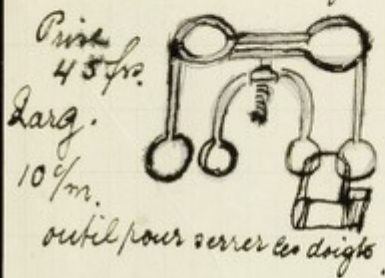 Prise
45 frs.
Larg.
10 c/m.
outil pour serrer les doigts